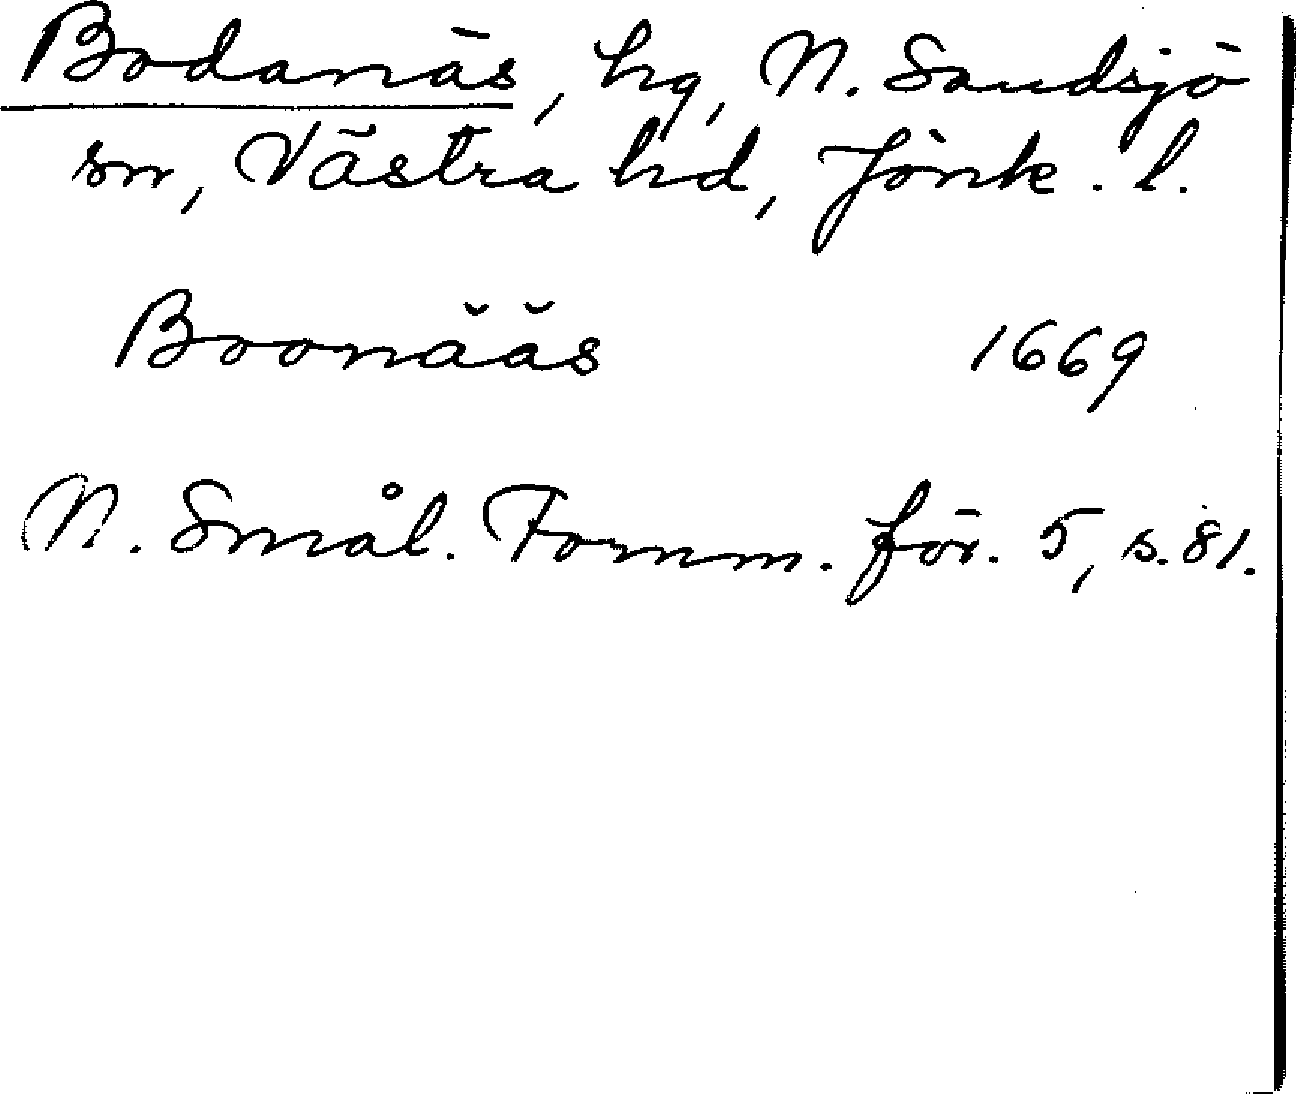 Bodanäs, hg, N. Sandsjö
sn, Västra hd, Jönk. l.
Boonääs 1669
N. Smål. Fornm. för. 5, s. 81.